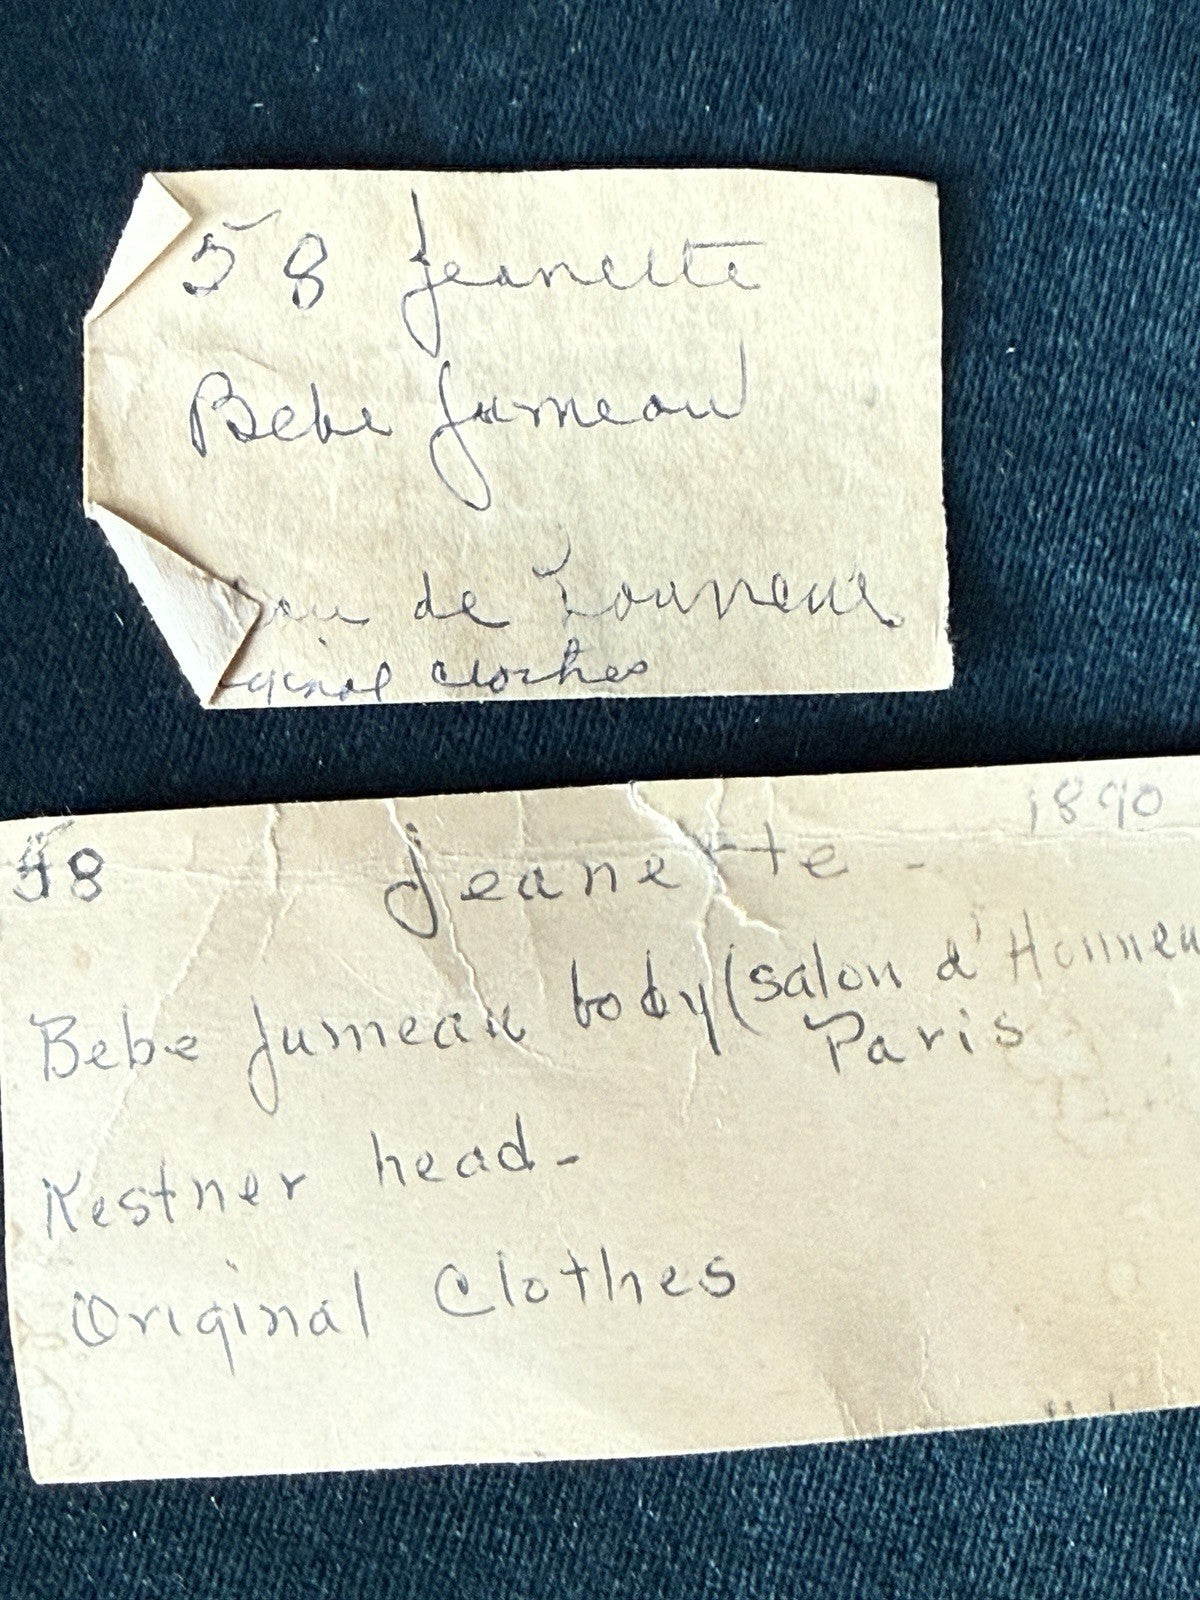 58 Jeanette
Bebe Jumeau
de
ginal clothes
1890
58 Jeanette -
Bebe Jumeau body (salon d'Honneu
Paris
Kestner head -
Original Clothes